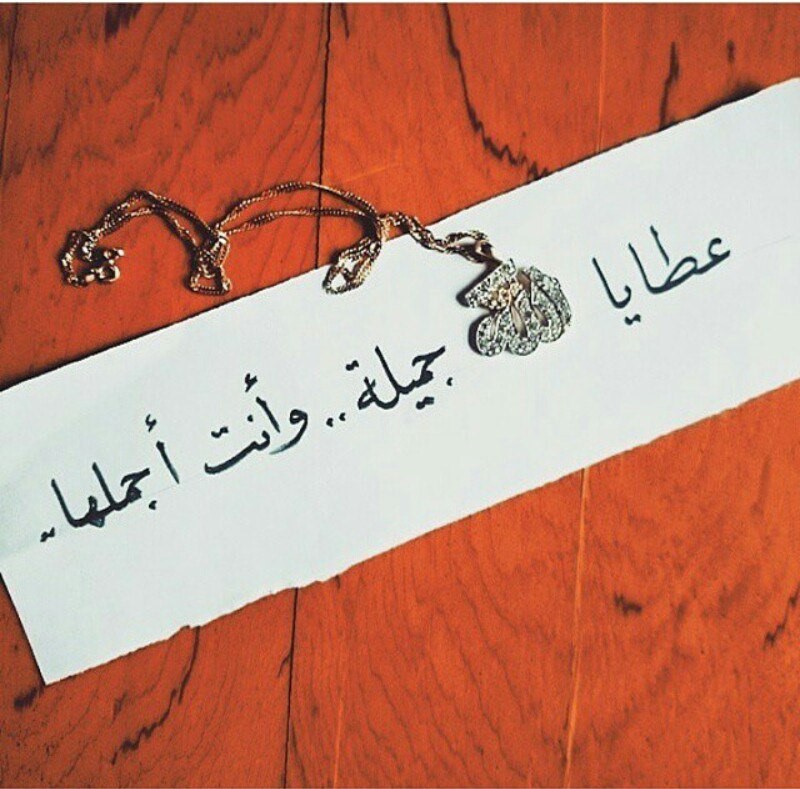 عطايا الله جميلة.. وأنت أجملها..